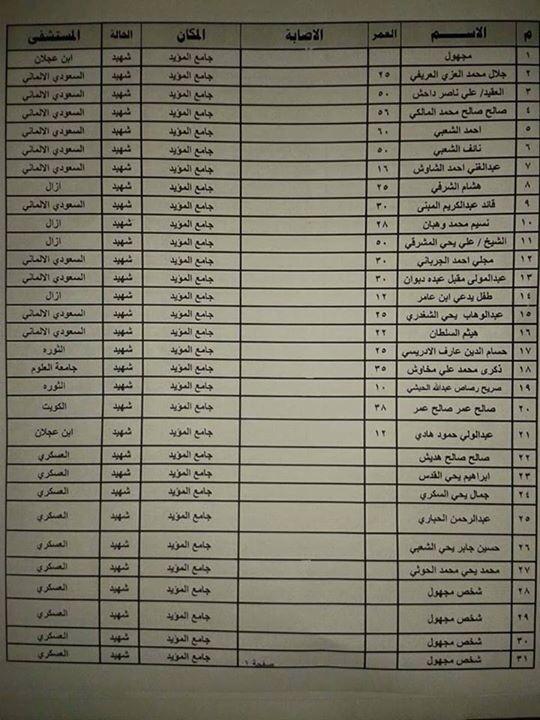 م الاسم العمر الاصابة المكان الحالة المستشفى
١ مجهول جامع المؤيد شهيد ابن عجلان
٢ جلال محمد العزي العريفي ٢٥ جامع المؤيد شهيد السعودي الالماني
٣ العقيد/ علي ناصر داحش ٥٠ جامع المؤيد شهيد السعودي الالماني
٤ صالح صالح محمد المالكي ٥٦ جامع المؤيد شهيد السعودي الالماني
٥ احمد الشعبي ٦٠ جامع المؤيد شهيد السعودي الالماني
٦ نائف الشعبي ٥٠ جامع المؤيد شهيد السعودي الالماني
٧ عبدالغني احمد الشاوش ١٦ جامع المؤيد شهيد السعودي الالماني
٨ هشام الشرفي ٢٥ جامع المؤيد شهيد ازال
٩ قائد عبدالكريم المبنى ٣٠ جامع المؤيد شهيد السعودي الالماني
١٠ نسيم محمد وهبان ٢٨ جامع المؤيد شهيد ازال
١١ الشيخ / علي يحي المشرفي ٥٠ جامع المؤيد شهيد ازال
١٢ مجلي احمد الجرباني ٣٠ جامع المؤيد شهيد السعودي الالماني
١٣ عبدالمولى مقبل عبده دبوان ٣٠ جامع المؤيد شهيد السعودي الالماني
١٤ طفل يدعي ابن عامر ١٢ جامع المؤيد شهيد ازال
١٥ عبدالوهاب يحي الشغدري ٢٥ جامع المؤيد شهيد السعودي الالماني
١٦ هيثم السلطان ٢٢ جامع المؤيد شهيد السعودي الالماني
١٧ حسام الدين عارف الادريسي ٢٥ جامع المؤيد شهيد الثوره
١٨ ذكرى محمد علي مخاوش ٣٥ جامع المؤيد شهيد جامعة العلوم
١٩ صريح رصاص عبدالله الحبشي ١٠ جامع المؤيد شهيد الثوره
٢٠ صالح عمر صالح عمر ٣٨ جامع المؤيد شهيد الكويت
٢١ عبدالولي حمود هادي ١٢ جامع المؤيد شهيد ابن عجلان
٢٢ صالح صالح هديش جامع المؤيد شهيد العسكري
٢٣ ابراهيم يحي القدس جامع المؤيد شهيد العسكري
٢٤ جمال يحي السكري جامع المؤيد شهيد العسكري
٢٥ عبدالرحمن الحباري جامع المؤيد شهيد العسكري
٢٦ حسين جابر يحي الشعبي جامع المؤيد شهيد العسكري
٢٧ محمد يحي محمد الحوثي جامع المؤيد شهيد العسكري
٢٨ شخص مجهول جامع المؤيد شهيد العسكري
٢٩ شخص مجهول جامع المؤيد شهيد العسكري
٣٠ شخص مجهول جامع المؤيد شهيد العسكري
٣١ شخص مجهول جامع المؤيد شهيد العسكري
صفحة ١